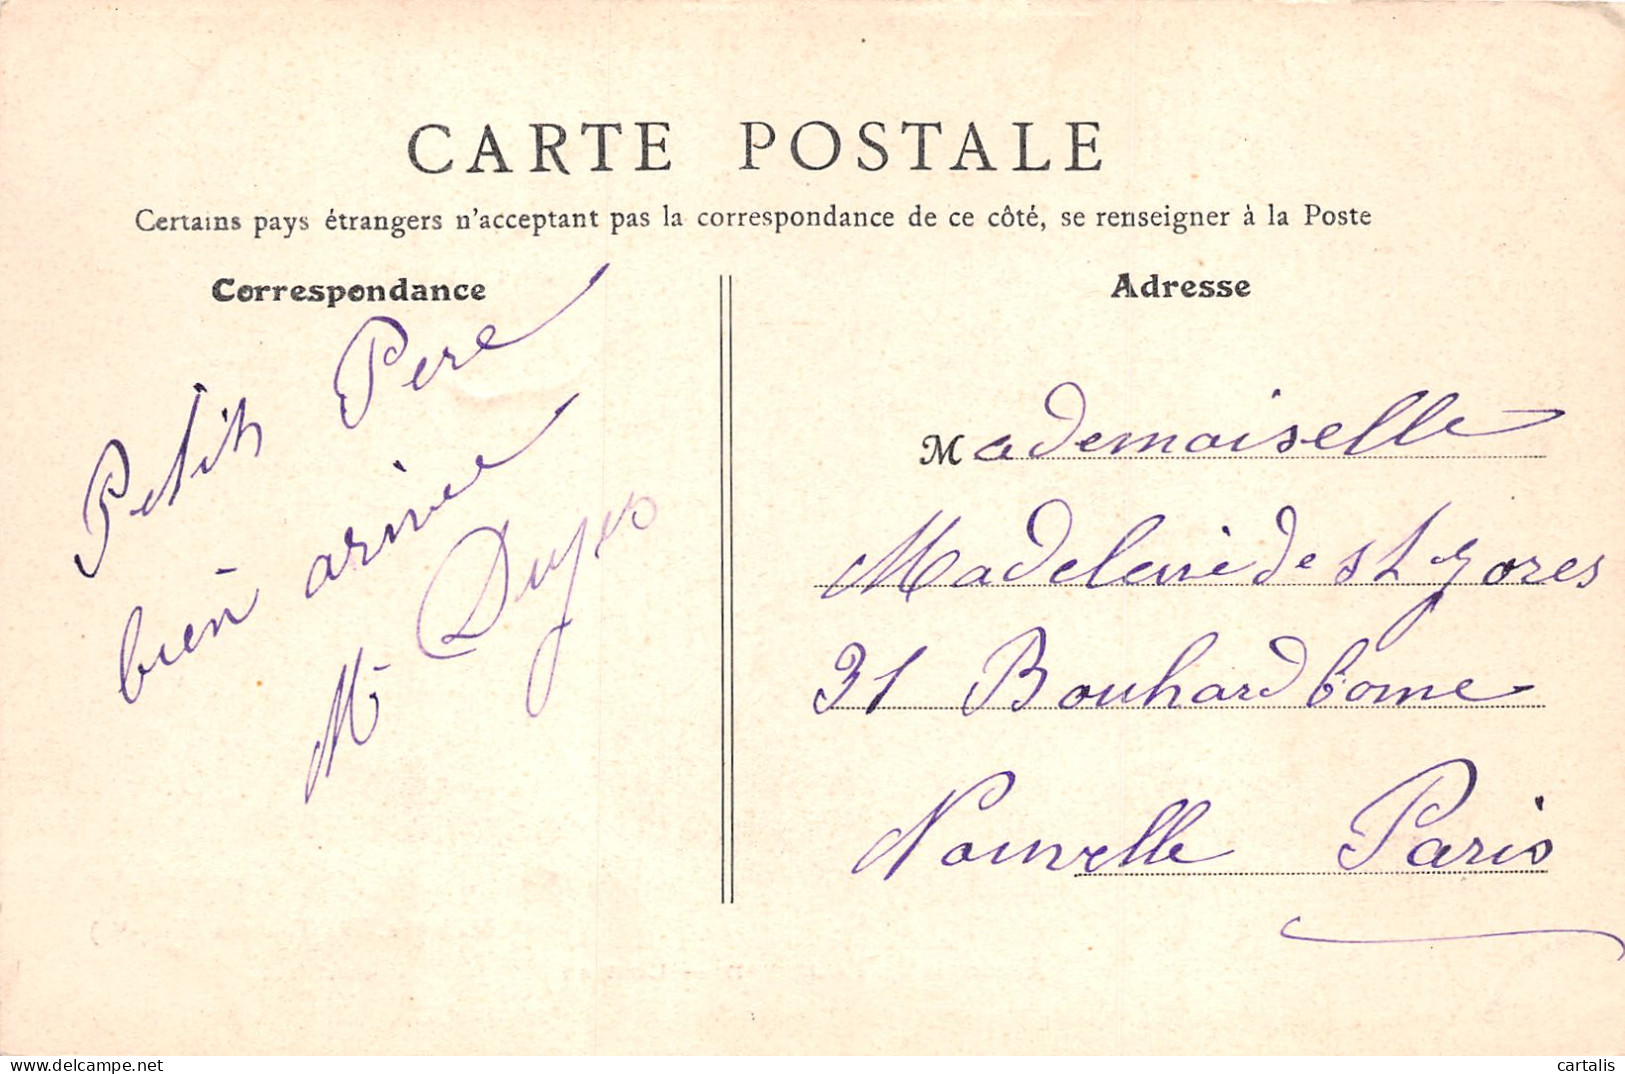 CARTE POSTALE
Certains pays étrangers n'acceptant pas la correspondance de ce côté, se renseigner à la Poste
Correspondance
Petit Pere
bien arrivee
M
Adresse
Mademoiselle
Madeleine de St
31 Bonne
Nouvelle Paris
cartalis